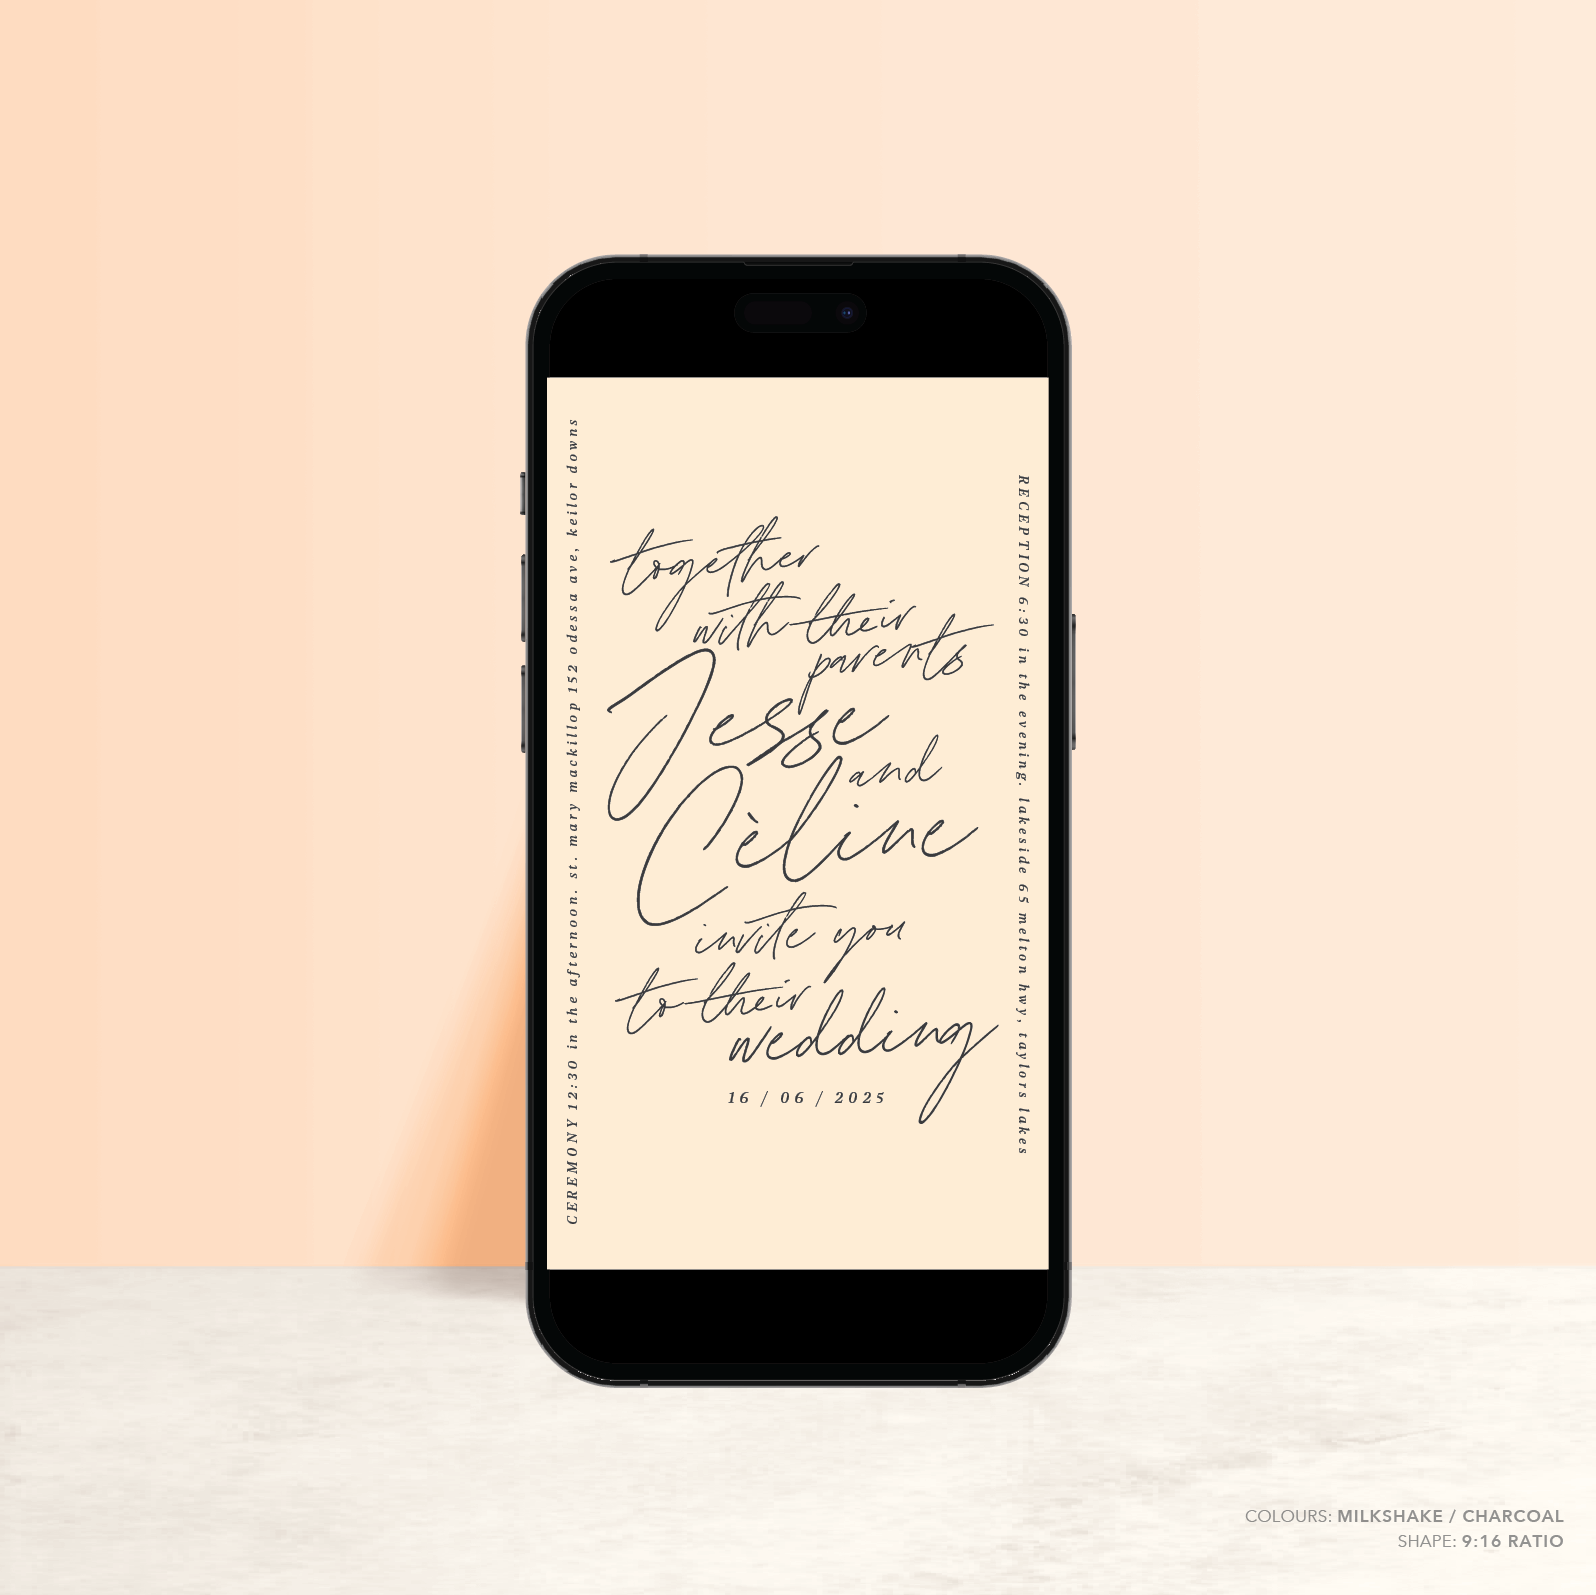 CEREMONY 12:30 in the afternoon. st. mary mackillop 152 odessa ave, keilor downs
together
with their
parents
Jesse
and
Cèline
invite you
to their
wedding
16 / 06 / 2025
RECEPTION 6:30 in the evening. lakeside 65 melton hwy, taylors lakes
COLOURS: MILKSHAKE / CHARCOAL
SHAPE: 9:16 RATIO